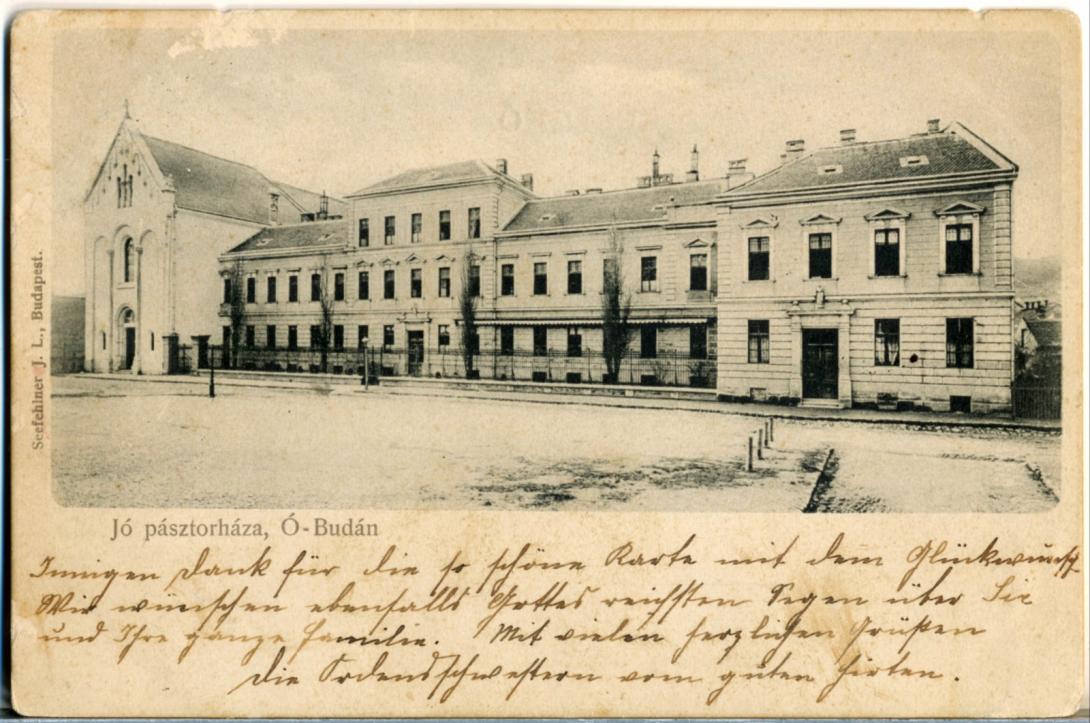 Seefehlner J. L., Budapest.
Jó pásztorháza, Ó-Budán
Innigen Dank für die so schöne Karte mit dem Glückwunsch
Wir wünschen ebenfalls Gottes reichsten Segen über Sie
und Ihre ganze Familie. Mit vielen herzlichen Grüßen
die Ordensschwestern vom guten Hirten.